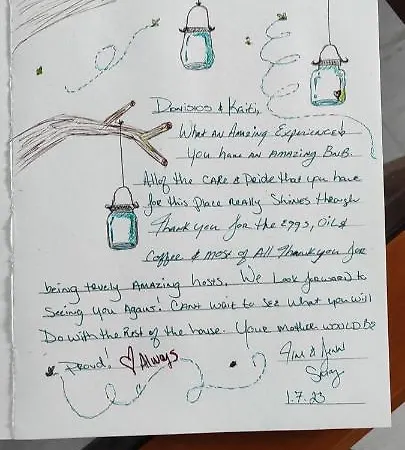 Dionisios & Kaiti,
What an Amazing Experience!
You have an Amazing BnB.
All of the care & Pride that you have
for this Place Really Shines through
Thank you for the eggs, Oil &
Coffee & most of All Thank you for
being truly Amazing hosts. We Look forward to
Seeing You Again! Can't wait to See What you will
Do with the Rest of the house. Your mother would be
Proud! Always
& Jenn
1.7.23